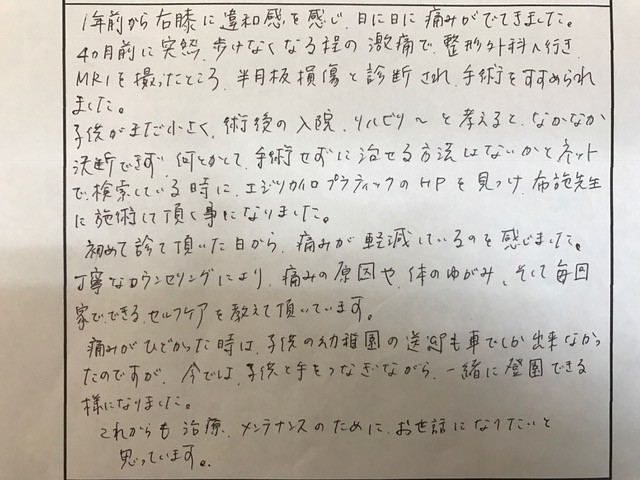 1年前から右膝に違和感を感じ、日に日に痛みがでてきました。
4ヶ月前に突然、歩けなくなる程の激痛で、整形外科へ行き、
MRIを撮ったところ、半月板損傷と診断され、手術をすすめられ
ました。
子供がまだ小さく、術後の入院、リハビリ〜と考えると、なかなか
決断できず、何とかして、手術せずに治せる方法はないかとネット
で検索している時に、エジリカイロプラティックのHPを見つけ、布施先生
に施術して頂く事になりました。
初めて診て頂いた日から、痛みが軽減しているのを感じました。
丁寧なカウンセリングにより、痛みの原因や、体のゆがみ、そして毎回
家でできるセルフケアを教えて頂いています。
痛みがひどかった時は、子供の幼稚園の送迎も車でしか出来なかっ
たのですが、今では、子供と手をつなぎながら、一緒に登園できる
様になりました。
これからも治療、メンテナンスのために、お世話になりたいと
思っています。